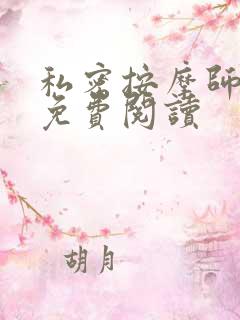 私密按摩師
免費閱讀
胡月